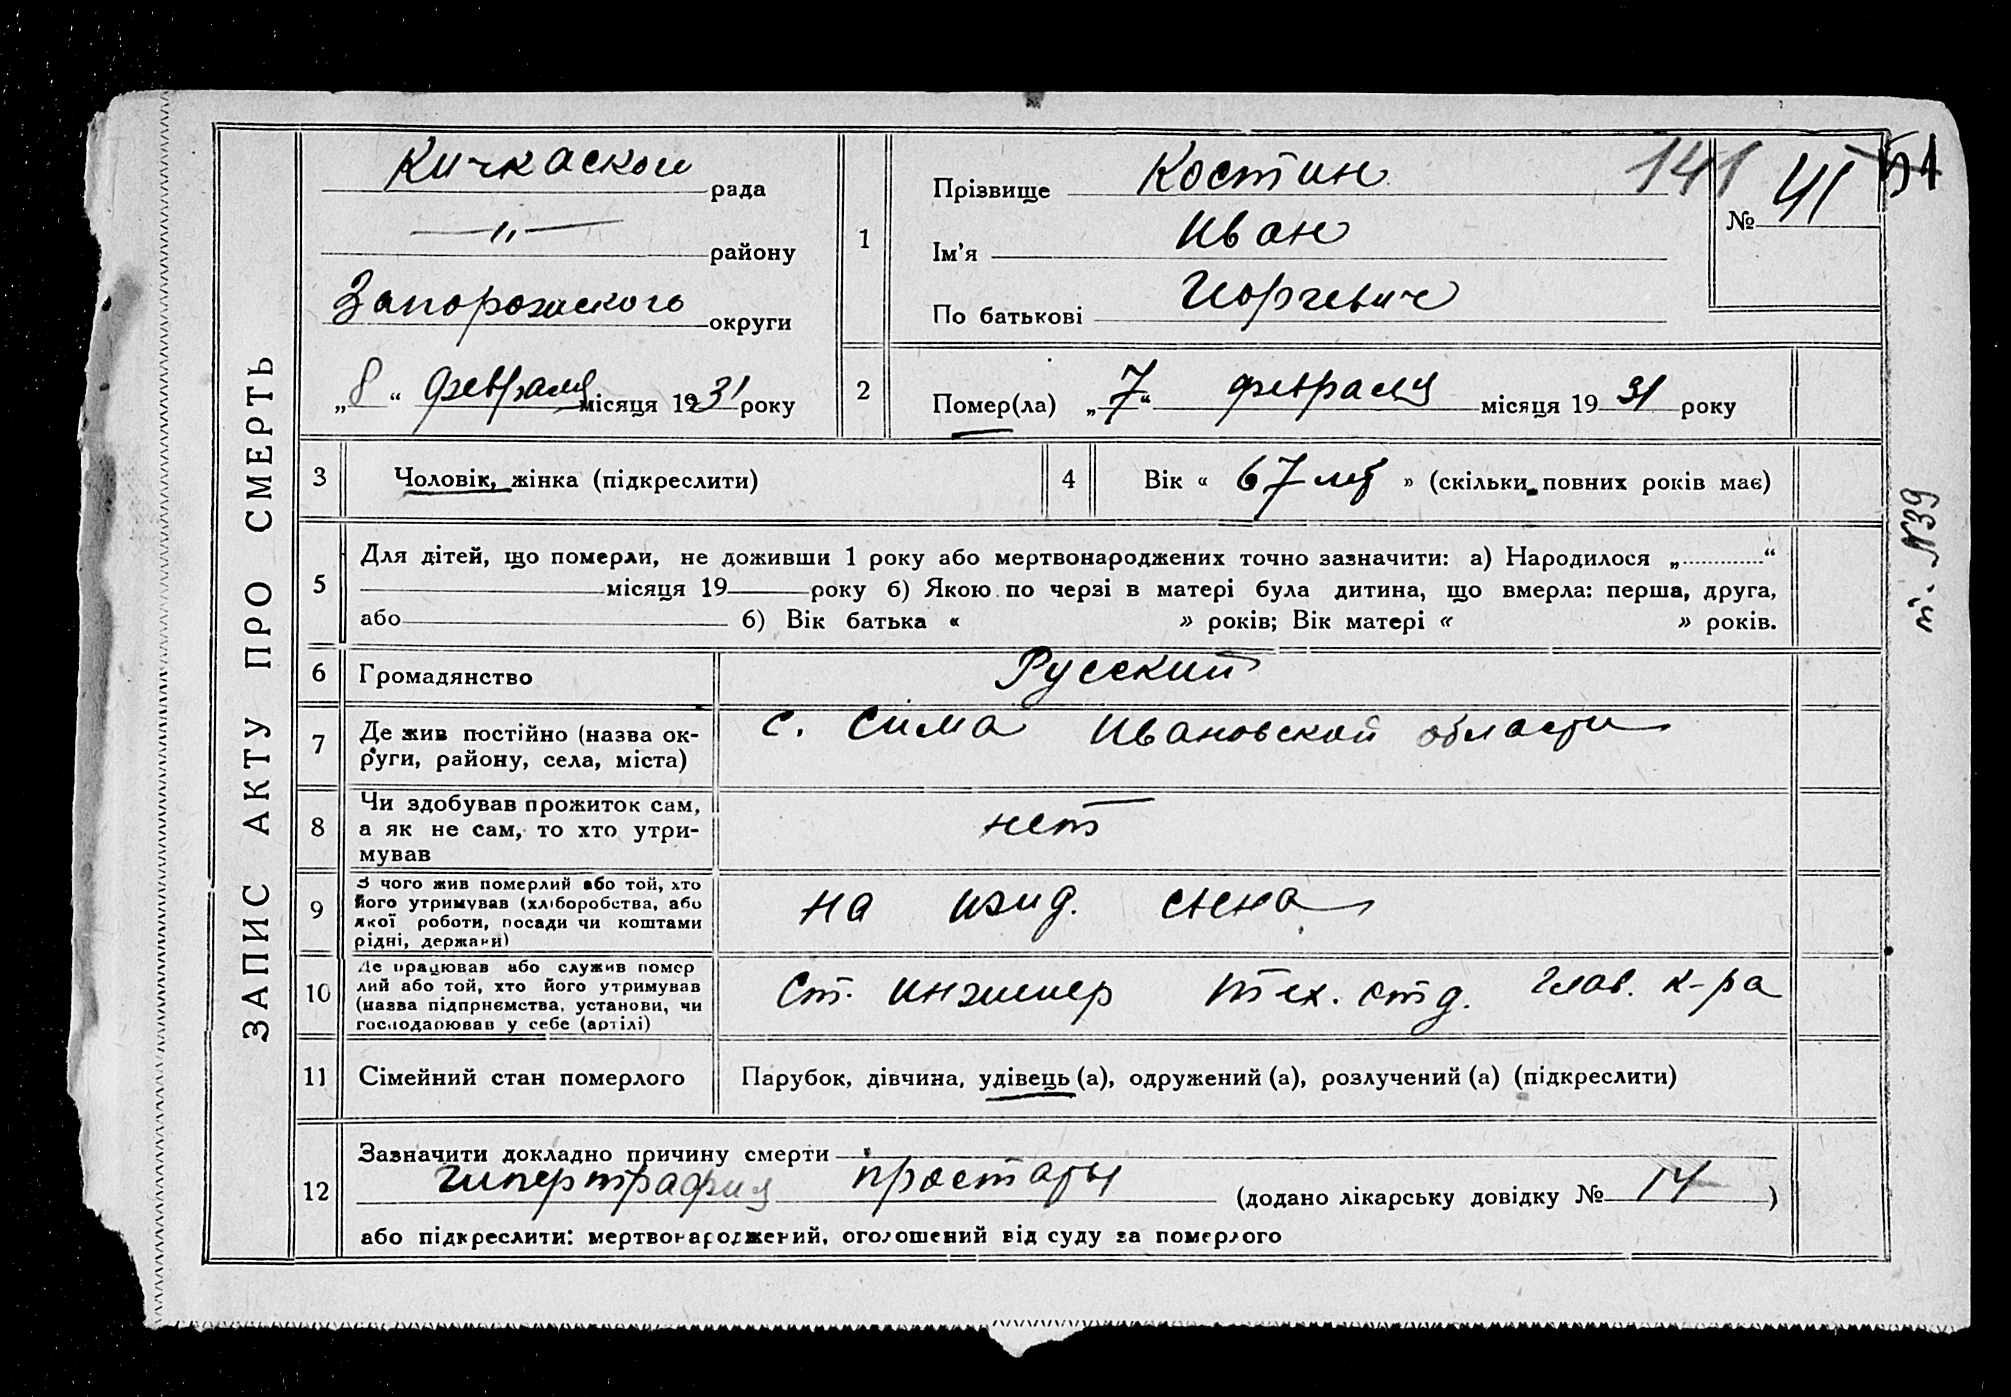 ЗАПИС АКТУ ПРО СМЕРТЬ
Кичкаской рада
—„— району
Запорожского округи
„8“ февраля місяця 1931 року
1
Прізвище Костин
Ім'я Иван
По батькові Георгевич
141
№ 41
51
2
Помер(ла) „7“ февраля місяця 1931 року
3
Чоловік, жінка (підкреслити)
4
Вік « 67 лет » (скільки повних років має)
5
Для дітей, що померли, не доживши 1 року або мертвонароджених точно зазначити: а) Народилося „ “
місяця 19 року б) Якою по черзі в матері була дитина, що вмерла: перша, друга,
або б) Вік батька « » років; Вік матері « » років.
6
Громадянство
Русский
7
Де жив постійно (назва ок-
руги, району, села, міста)
с. Сима Ивановской области
8
Чи здобував прожиток сам,
а як не сам, то хто утри-
мував
нет
9
З чого жив померлий або той, хто
його утримував (хліборобства, або
якої роботи, посади чи коштами
рідні, держави)
на ижд. сына
10
Де працював або служив помер
лий або той, хто його утримував
(назва підприємства, установи, чи
господарював у себе (артілі)
Ст. инженер тех. отд. глав. к-ра
11
Сімейний стан померлого
Парубок, дівчина, удівець (а), одружений (а), розлучений (а) (підкреслити)
12
Зазначити докладно причину смерти
гипертрафия простаты (додано лікарську довідку № 14 )
або підкреслити: мертвонароджений, оголошений від суду за померлого